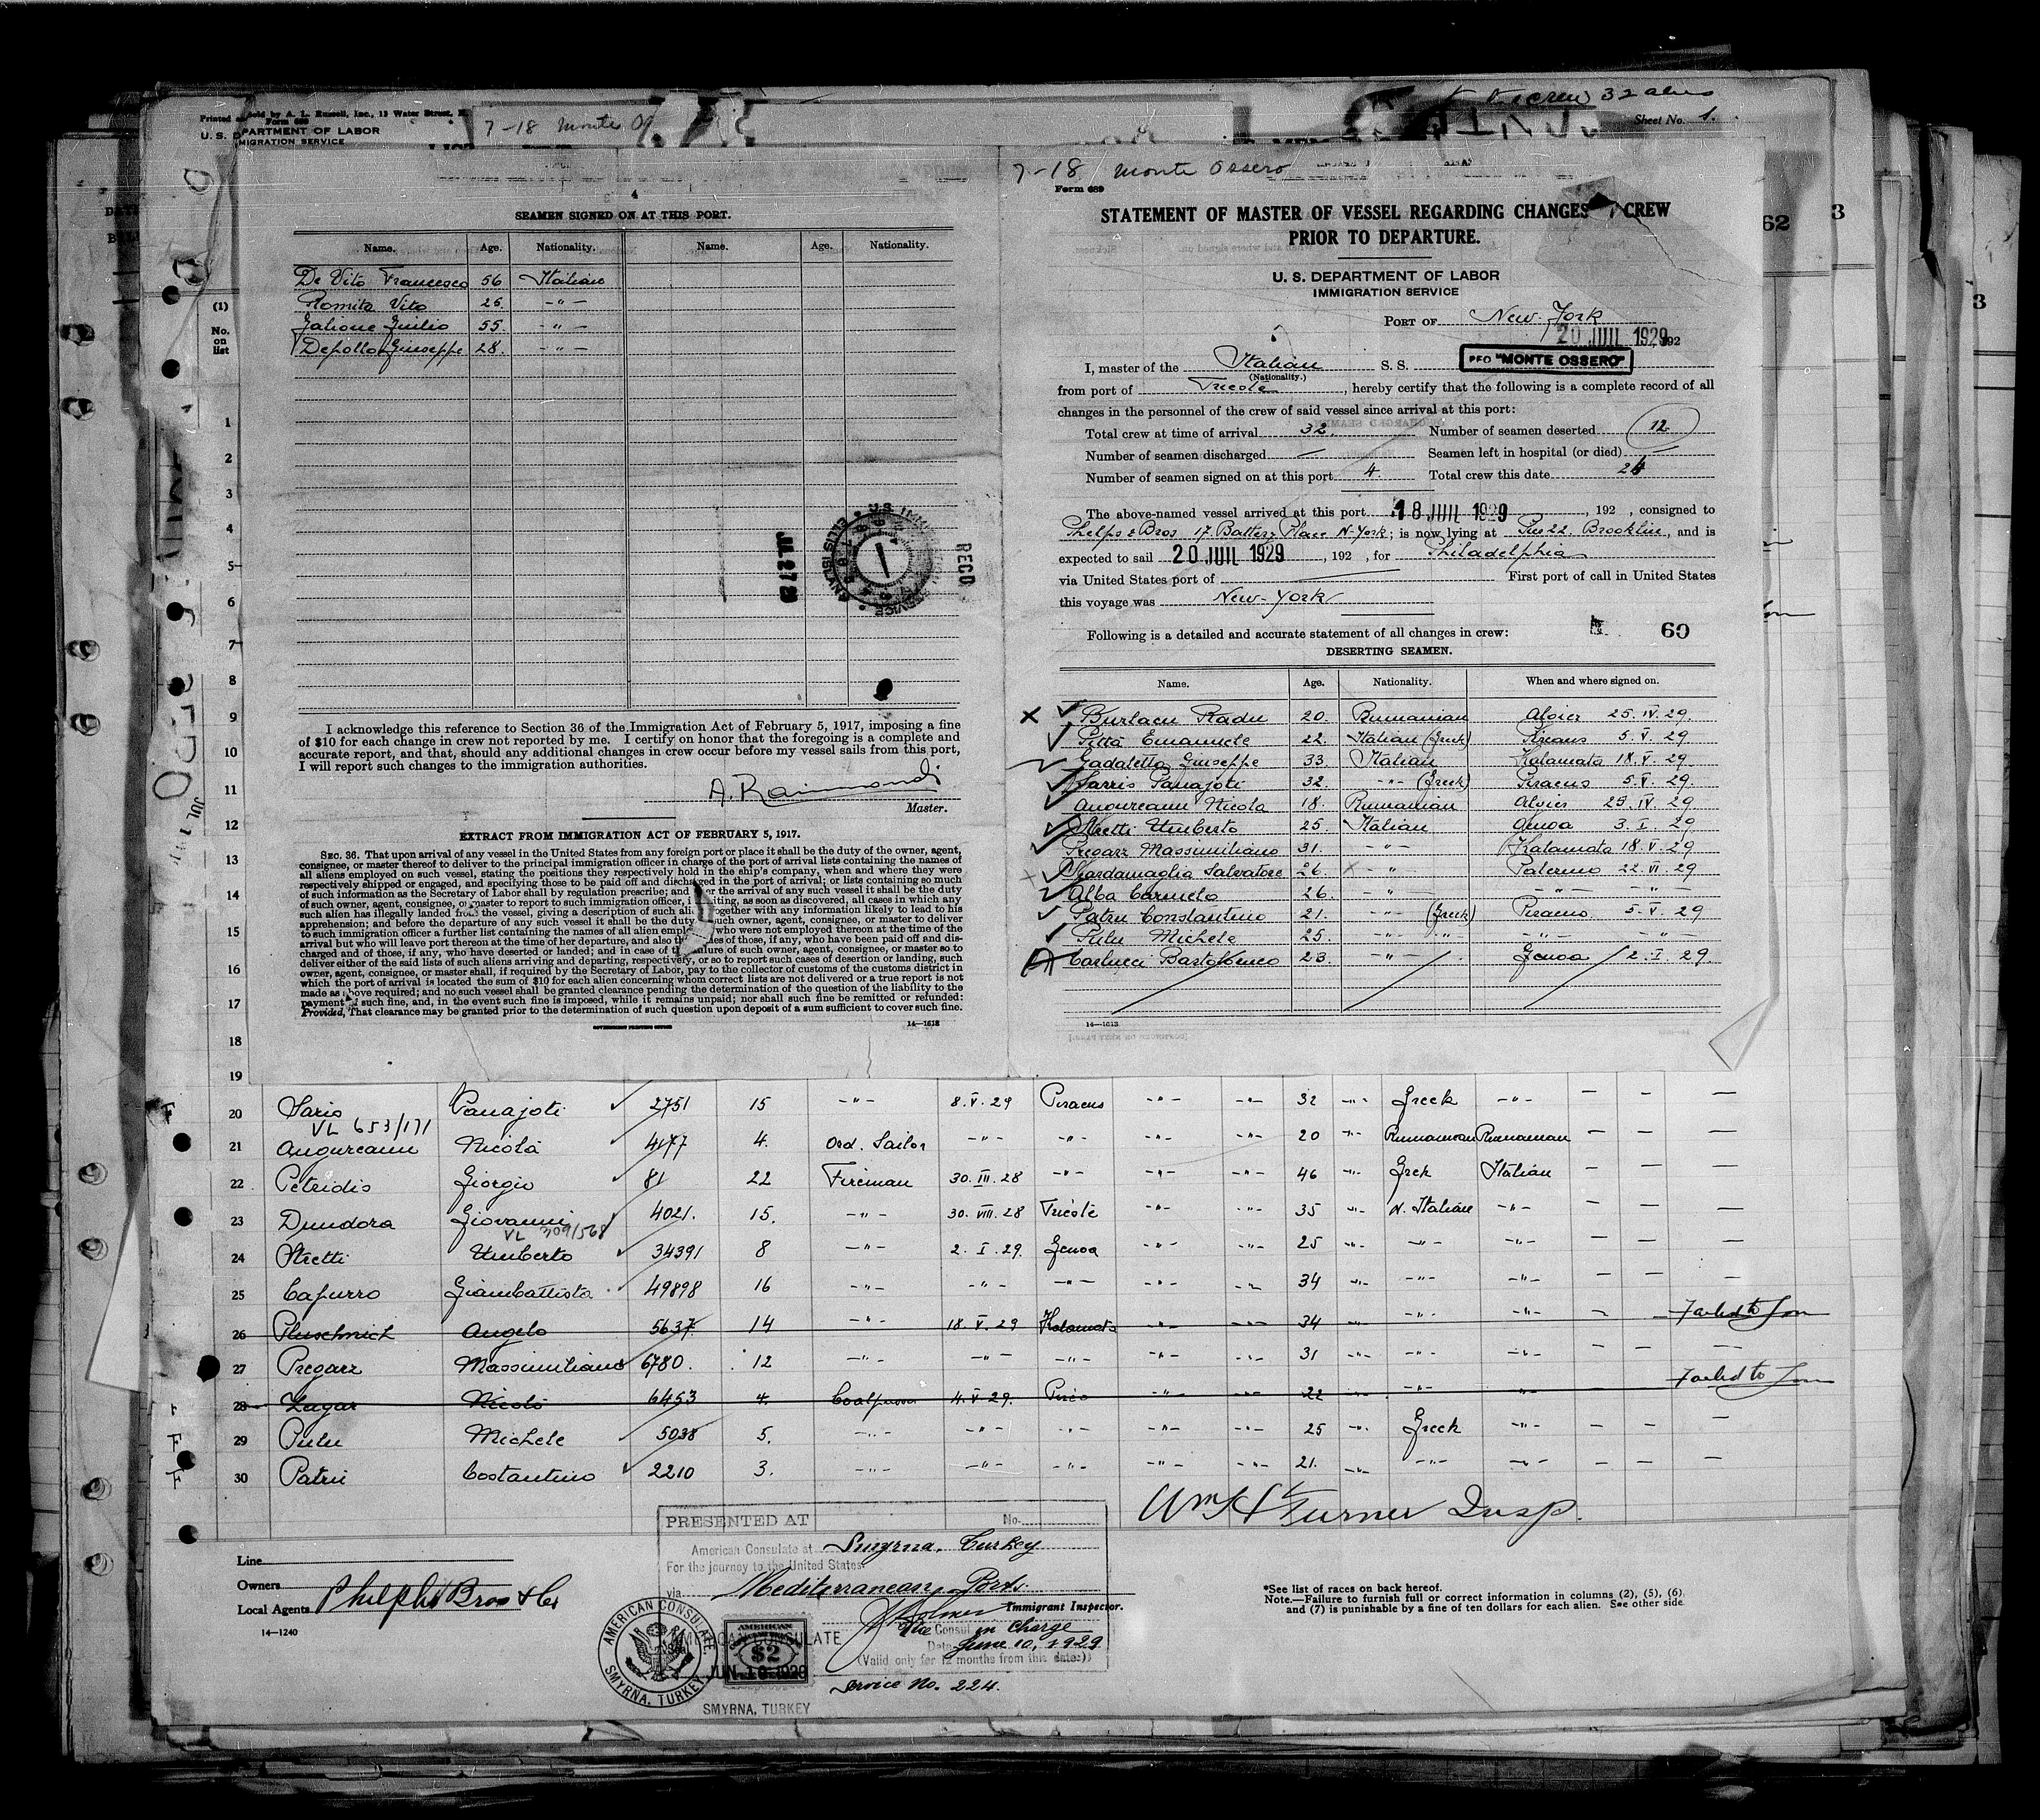 Printed and sold by A. L. Russell, Inc., 13 Water Street,
Form 689
U. S. DEPARTMENT OF LABOR
IMMIGRATION SERVICE
7-18 Monte
crew 32
Sheet No. 1.
(1)
No.
on
list
4
SEAMEN SIGNED ON AT THIS PORT.
Name. Age. Nationality. Name. Age. Nationality.
De Vito Francesco 56 Italian
Romita Vito 26. -"-
Galione Giulio 55. -"-
Depollo Giuseppe 28. -"-
U. S. IMM SERVICE
RECD
JUL 27 29
I acknowledge this reference to Section 36 of the Immigration Act of February 5, 1917, imposing a fine
of $10 for each change in crew not reported by me. I certify on honor that the foregoing is a complete and
accurate report, and that, should any additional changes in crew occur before my vessel sails from this port,
I will report such changes to the immigration authorities.
A. Raimondi
Master.
EXTRACT FROM IMMIGRATION ACT OF FEBRUARY 5, 1917.
SEC. 36. That upon arrival of any vessel in the United States from any foreign port or place it shall be the duty of the owner, agent,
consignee, or master thereof to deliver to the principal immigration officer in charge of the port of arrival lists containing the names of
all aliens employed on such vessel, stating the positions they respectively hold in the ship's company, when and where they were
respectively shipped or engaged, and specifying those to be paid off and discharged in the port of arrival; or lists containing so much
of such information as the Secretary of Labor shall by regulation prescribe; and after the arrival of any such vessel it shall be the duty
of such owner, agent, consignee, or master to report to such immigration officer, in writing, as soon as discovered, all cases in which any
such alien has illegally landed from the vessel, giving a description of such alien, together with any information likely to lead to his
apprehension; and before the departure of any such vessel it shall be the duty of such owner, agent, consignee, or master to deliver
to such immigration officer a further list containing the names of all alien employees who were not employed thereon at the time of the
arrival but who will leave port thereon at the time of her departure, and also the names of those, if any, who have been paid off and dis-
charged and of those, if any, who have deserted or landed; and in case of the failure of such owner, agent, consignee, or master so to
deliver either of the said lists of such aliens arriving and departing, respectively, or so to report such cases of desertion or landing, such
owner, agent, consignee, or master shall, if required by the Secretary of Labor, pay to the collector of customs of the customs district in
which the port of arrival is located the sum of $10 for each alien concerning whom correct lists are not delivered or a true report is not
made as above required; and no such vessel shall be granted clearance pending the determination of the question of the liability to the
payment of such fine, and, in the event such fine is imposed, while it remains unpaid; nor shall such fine be remitted or refunded:
Provided, That clearance may be granted prior to the determination of such question upon deposit of a sum sufficient to cover such fine.
GOVERNMENT PRINTING OFFICE 14—1613
7-18 Monte Ossero
Form 689
STATEMENT OF MASTER OF VESSEL REGARDING CHANGES CREW
PRIOR TO DEPARTURE.
U. S. DEPARTMENT OF LABOR
IMMIGRATION SERVICE
PORT OF New-York
20 JUIL 1929, 192
I, master of the Italian S. S. PFO "MONTE OSSERO"
(Nationality.)
from port of Trieste, hereby certify that the following is a complete record of all
changes in the personnel of the crew of said vessel since arrival at this port:
Total crew at time of arrival 32. Number of seamen deserted 12
Number of seamen discharged — Seamen left in hospital (or died) —
Number of seamen signed on at this port 4. Total crew this date 24
The above-named vessel arrived at this port 18 JUIL 1929, 192 , consigned to
Phelps & Bros 17 Battery Place N-York; is now lying at Pier 22. Brooklin, and is
expected to sail 20 JUIL 1929, 192 , for Philadelphia
via United States port of — First port of call in United States
this voyage was New-York
60
Following is a detailed and accurate statement of all changes in crew:
DESERTING SEAMEN.
Name. Age. Nationality. When and where signed on.
Burlacu Radu 20. Rumanian Algier 25. IV. 29.
Pitta Emanuele 22. Italian (Greek) Pireaus 5. V. 29
Gadaletta Giuseppe 33. Italian Kalamata 18. V. 29
Sarris Panajoti 32. -"- (Greek) Piraeus 5. V. 29.
Angureanu Nicola 18. Rumanian Algier 25. IV. 29.
Stretti Umberto 25. Italian Genoa 3. I. 29
Pregarz Massimiliano 31. -"- Kalamata 18. V. 29
Scardamaglia Salvatore 26. -"- Palermo 22. VI. 29
Alba Carmelo 26. -"- -"- -"-
Patru Constantino 21. -"- (Greek) Piraeus 5. V. 29
Pulu Michele 25. -"- -"- -"- -"-
Carlucci Bartolomeo 23. -"- Genoa 2. I. 29.
14—1613
1
2
3
4
5
6
7
8
9
10
11
12
13
14
15
16
17
18
19
F 20 Saris Panajoti 2751 15 -"- 8. V. 29 Piraeus -"- -"- 32 -"- Greek -"- — — —
VL 653/171
21 Angureanu Nicola 4177 4. Ord. Sailor -"- -"- -"- -"- 20 -"- Rumanian Rumanian — — —
22 Petridis Giorgio 81 22 Fireman 30. III. 28 -"- -"- -"- 46 -"- Grek Italian — — —
23 Dundora Giovanni 4021. 15. -"- 30. VIII. 28 Trieste -"- -"- 35 -"- N. Italian -"- — — —
VL 309/568
24 Stretti Umberto 34391 8 -"- 2. I. 29. Genoa -"- -"- 25 -"- -"- -"- — — —
25 Capurro Giambattista 49898 16 -"- -"- -"- -"- -"- 34 -"- -"- -"- — — —
26 Pluschnich Angelo 5637 14 -"- 18 V. 29 Kalamata -"- -"- 34 -"- -"- -"- — — Failed to Join
27 Pregarz Massimiliano 6780. 12 -"- -"- -"- -"- -"- 31 -"- -"- -"- — — —
28 Zagar Nicolo 6453 4. Coalpasser 4. V. 29. Pireo -"- -"- 22 -"- -"- Failed to Join
F 29 Pulu Michele 5038 5. -"- -"- -"- -"- -"- 25 -"- Greek -"- — — —
F 30 Patru Costantino 2210 3. -"- -"- -"- -"- -"- 21. -"- -"- -"- — — —
Wm H Turner Insp.
Line
Owners
Local Agents Phelps Bros & Co
14—1240
PRESENTED AT No.
American Consulate at Smyrna, Turkey
For the journey to the United States
via Mediterranean Ports.
Immigrant Inspector.
Vice Consul in Charge
Date June 10, 1929
(Valid only for 12 months from this date:)
Service No. 224.
AMERICAN CONSULATE SMYRNA, TURKEY
AMERICAN CONSULATE
JUN 10 1929
SMYRNA, TURKEY
AMERICAN $2
*See list of races on back hereof.
Note.—Failure to furnish full or correct information in columns (2), (5), (6)
and (7) is punishable by a fine of ten dollars for each alien. See other side
62
3
3